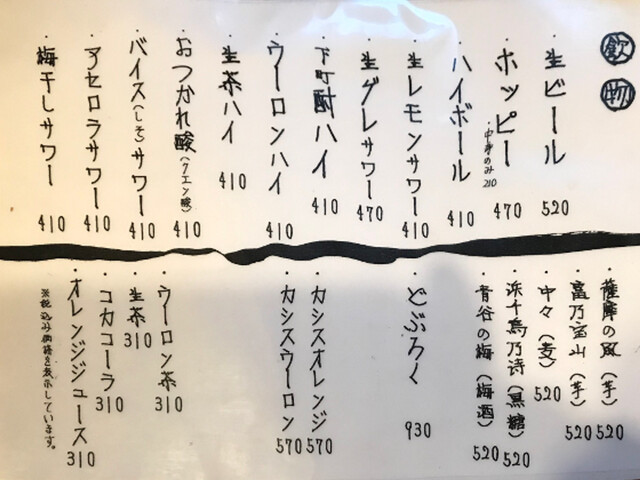 飲物
・生ビール 520
・ホッピー 470
・中身のみ 210
・ハイボール 410
・生レモンサワー 410
・生グレサワー 470
・下町酎ハイ 410
・ウーロンハイ 410
・生茶ハイ 410
・おつかれ酸(クエン酸) 410
・バイス(しそ)サワー 410
・アセロラサワー 410
・梅干しサワー 410
・薩摩の風(芋) 520
・富乃宝山(芋) 520
・中々(麦) 520
・浜千鳥乃詩(黒糖) 520
・青谷の梅(梅酒) 520
・どぶろく 930
・カシスオレンジ 570
・カシスウーロン 570
・ウーロン茶 310
・生茶 310
・コカコーラ 310
・オレンジジュース 310
※税込み価格を表示しています。